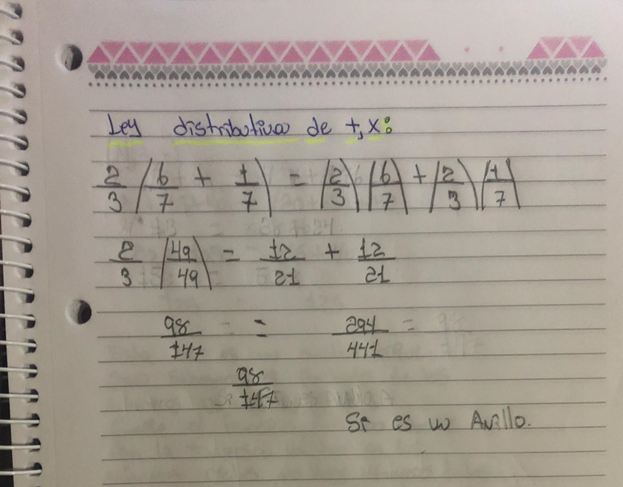 Ley distributiva de +, x:
2/3 (6/7 + 1/7) = (2/3)(6/7) + (2/3)(1/7)
2/3 (49/49) = 12/21 + 12/21
98/147 = = 294/441 =
98/147
Si es un Anillo.